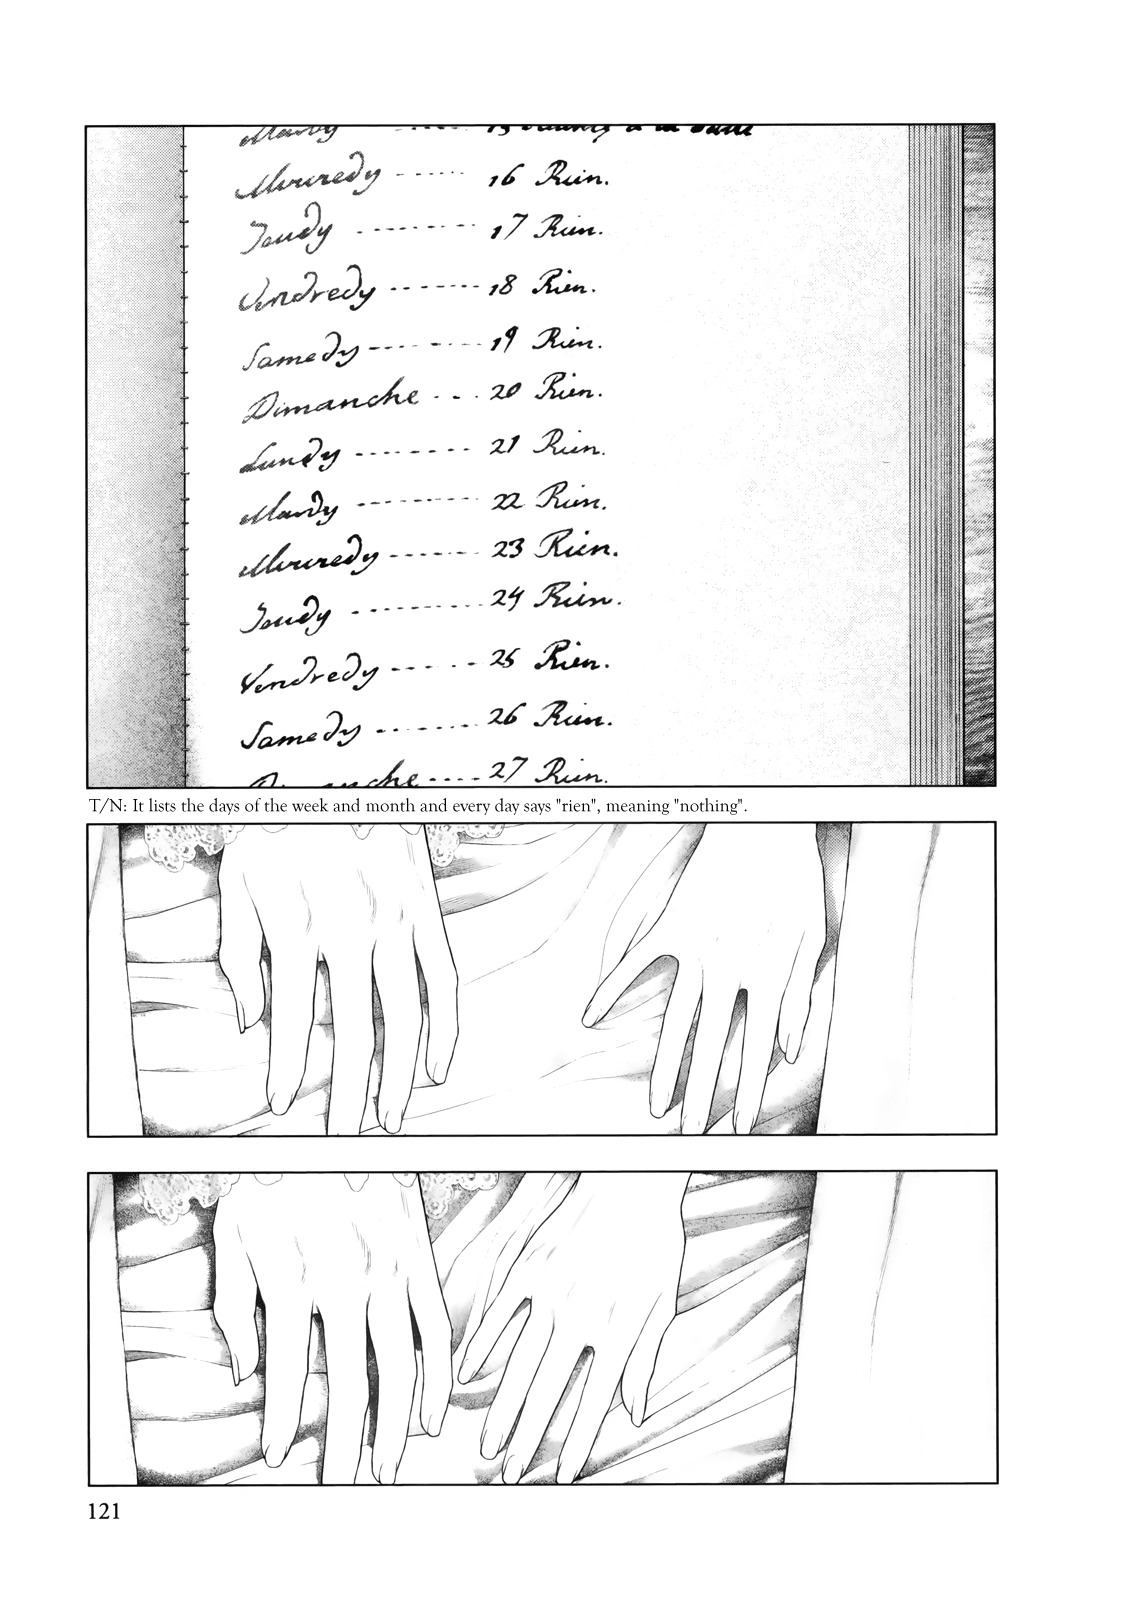 16 Rien.
Jeudy -------- 17 Rien.
Vendredy ------- 18 Rien.
Samedy -------- 19 Rien.
Dimanche --- 20 Rien.
Lundy -------- 21 Rien.
Mardy --------- 22 Rien.
Mercredy ------- 23 Rien.
Jeudy ---------- 24 Rien.
Vendredy ------ 25 Rien.
Samedy ------- 26 Rien.
Dimanche ---- 27 Rien.
T/N: It lists the days of the week and month and every day says "rien", meaning "nothing".
121